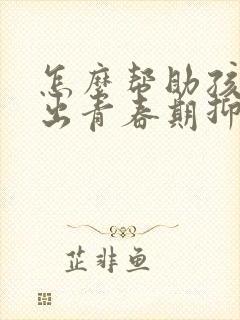 怎麼帮助孩
出青春期抑
芷非鱼